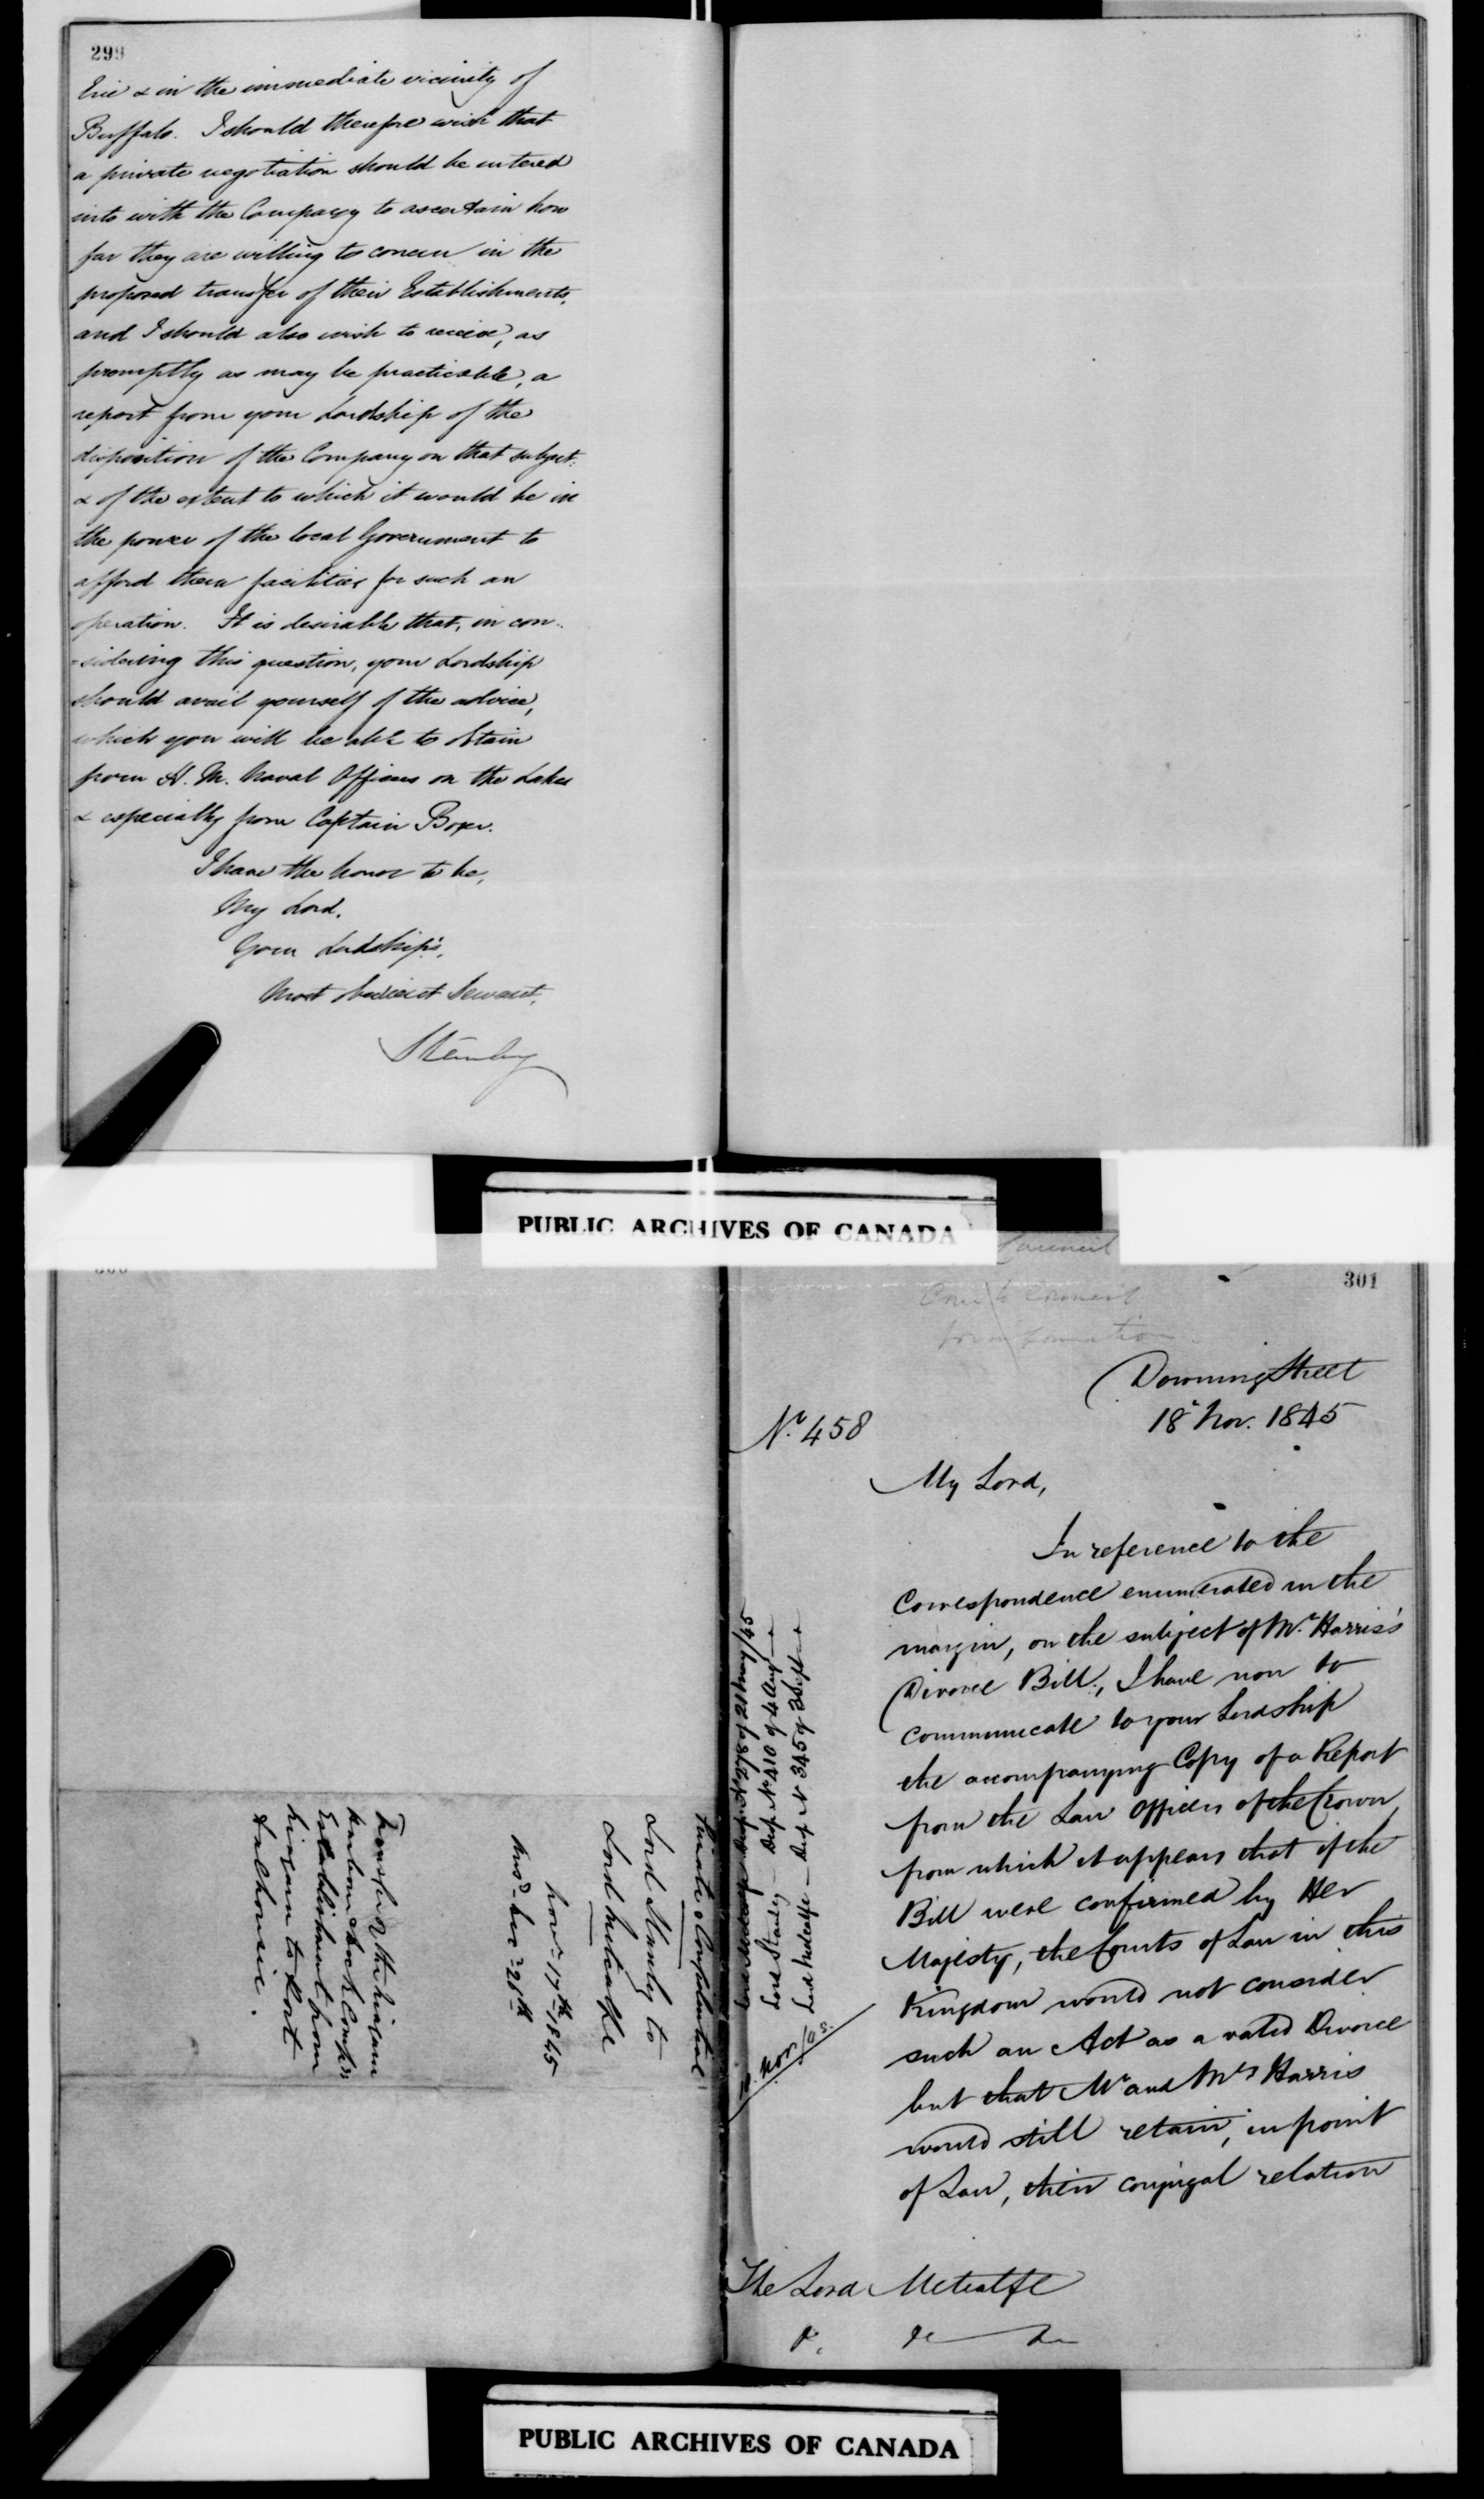 299
Erie & in the immediate vicinity of
Buffalo. I should therefore wish that
a private negotiation should be entered
into with the Company to ascertain how
far they are willing to concur in the
proposed transfer of their Establishments,
and I should also wish to receive, as
promptly as may be practicable, a
report from your Lordship of the
disposition of the Company on that subject:
& of the extent to which it would be in
the power of the local Government to
afford them facilities for such an
operation. It is desirable that, in con-
-sidering this question, your Lordship
should avail yourself of the advice,
which you will be able to obtain
from H. M. Naval Officers on the Lakes
& especially from Captain Boxer.
I have the honor to be,
My Lord,
Your Lordship's,
Most obedient Servant,
Stanley
PUBLIC ARCHIVES OF CANADA
300
Private & Confidential
Lord Stanley to
Lord Metcalfe
Novr. 17th 1845
Ansd. Decr. 26th
Transfer of the Niagara
Harbour & Dock Compy's
Establishment from
Niagara to Port
Dalhousie.
Council
301
Com to Council
for information
Downing Street
18 Nov. 1845
No. 458
My Lord,
In reference to the
Correspondence enumerated in the
margin, on the subject of Mr. Harris's
Divorce Bill, I have now to
communicate to your Lordship
the accompanying Copy of a Report
from the Law Officers of the Crown,
from which it appears that if the
Bill were confirmed by Her
Majesty, the Courts of Law in this
Kingdom would not consider
such an Act as a valid Divorce
but that Mr and Mrs Harris
would still retain, in point
of Law, their conjugal relation
Lord Stanley - Desp. No 410 of 4 Aug
Lord Metcalfe - Desp No 345 of 3 Sept
Nov/45
The Lord Metcalfe
&c &c &c
PUBLIC ARCHIVES OF CANADA